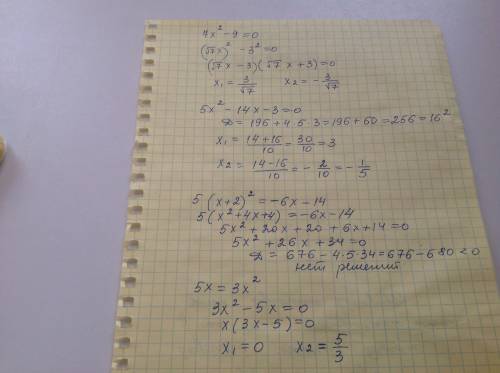 7x² - 9 = 0
(√7x)² - 3² = 0
(√7x - 3)(√7x + 3) = 0
x₁ = 3/√7   x₂ = - 3/√7
5x² - 14x - 3 = 0
D = 196 + 4·5·3 = 196 + 60 = 256 = 16²
x₁ = (14+16)/10 = 30/10 = 3
x₂ = (14-16)/10 = - 2/10 = - 1/5
5(x+2)² = -6x - 14
5(x² + 4x + 4) = -6x - 14
5x² + 20x + 20 + 6x + 14 = 0
5x² + 26x + 34 = 0
D = 676 - 4·5·34 = 676 - 680 < 0
нет решений
5x = 3x²
3x² - 5x = 0
x(3x - 5) = 0
x₁ = 0   x₂ = 5/3